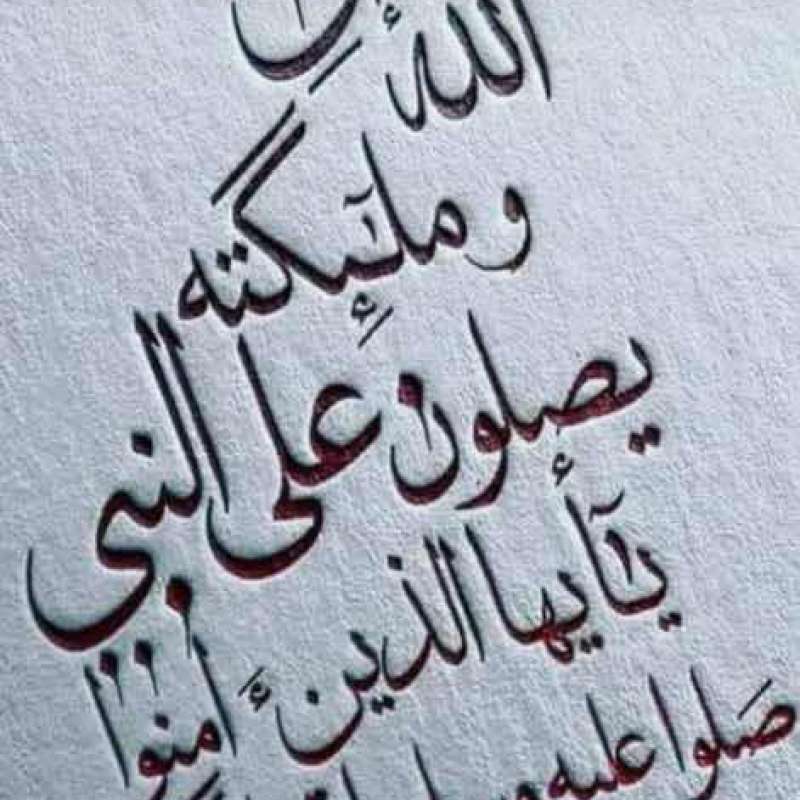 الله
وملٰٓئكته
يصلون على النبي
يٰٓأيها الذين ءَامنوا
صلوا عليه